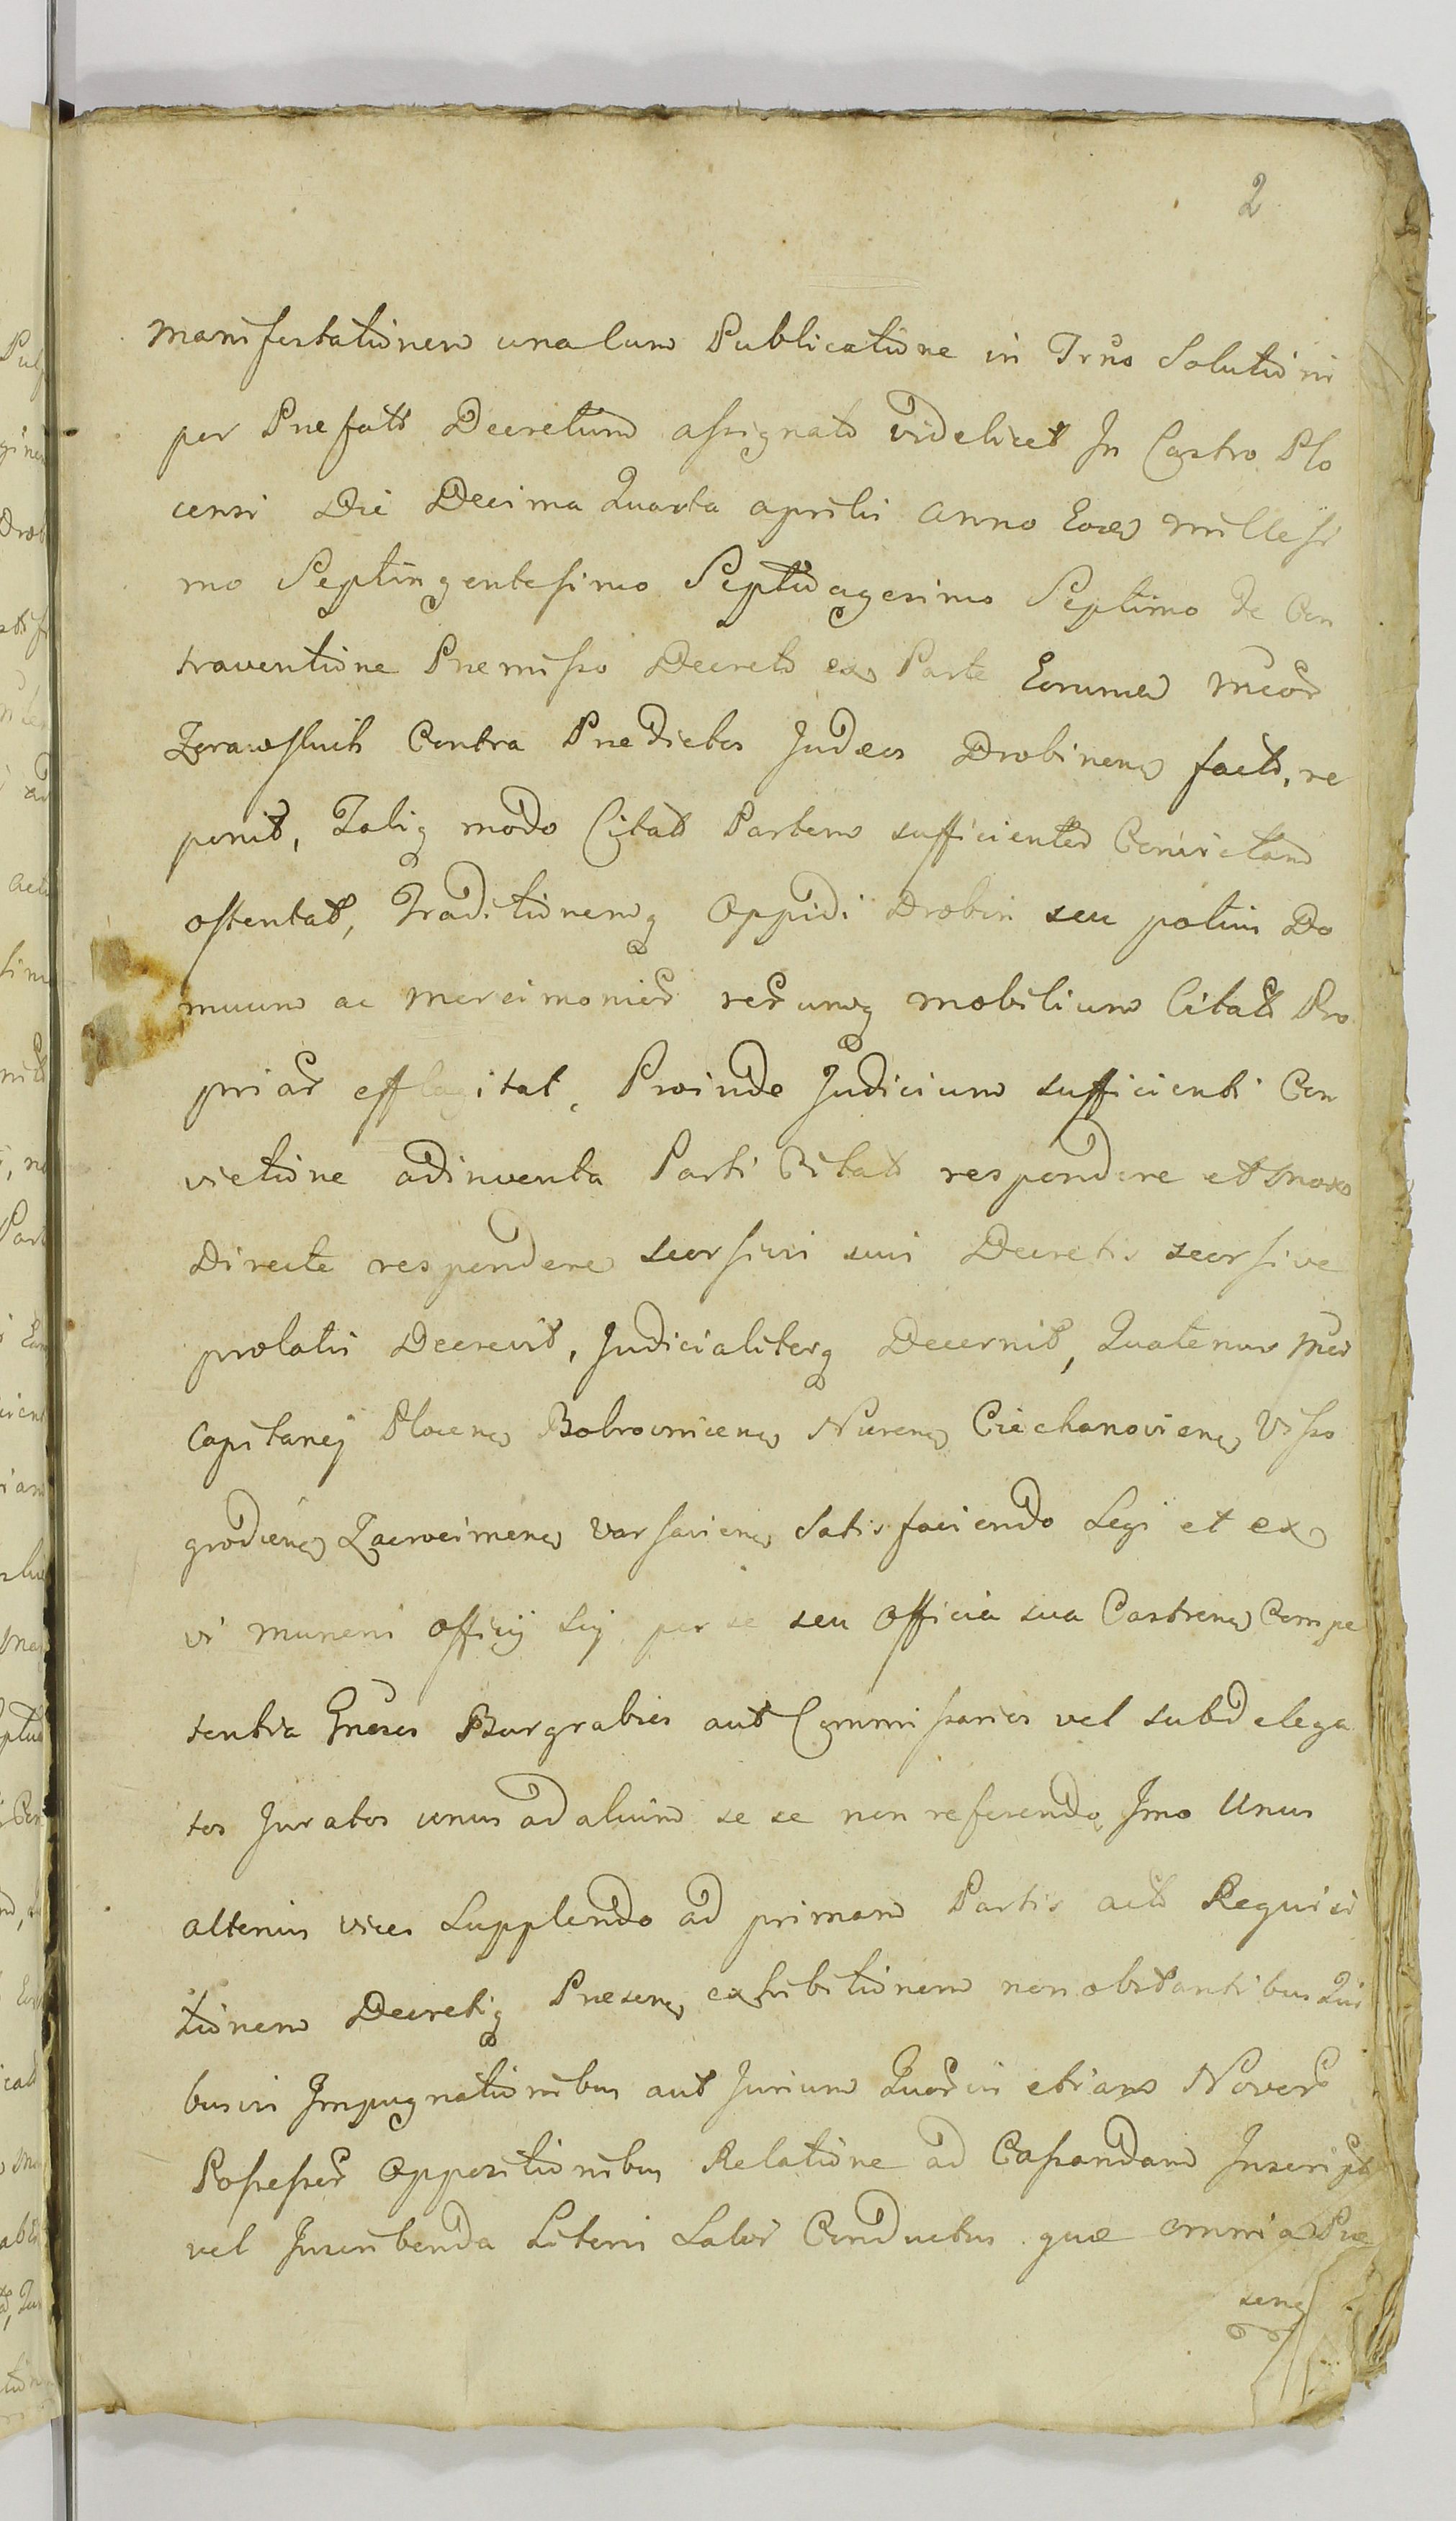 2
manifestationem unacum Publicatione in Trno Solutionis
per Praefatt Decretum assignato videlicet In Castro Plo
censi Die Decima Quarta aprilis anno Eodem millesi
mo Septingentesimo Septuagesimo Septimo de Con
traventione Praemisso Decreto ex Parte Eorumd
contra Praedictos Judaeos Drobinens fact, re
ponit, Taliq modo Citat Partem sufficienter Convictam
ostentat, Traditionemq Oppidi Drobin seu potius Do
muum ac mercimonior rerumq mobilium Citatt Pro
priar efflagitat, Proinde Judicium sufficienti Con
victione adinventa Parti Citat respondere et mox
Directe respondere seorsivis suis Decretis seorsive
prolatis Decrevit, Judicialiterq Decernit, Quatenus
Capitanej Plocens Bobrownicens Nurens Ciechanoviens Visso
grodiens Zacrocimens Varsaviens Satisfaciendo Legi et ex
vi muneris officij sui per se seu officia sua Castrens Compe
tentia Gnosos Burgrabios aut Commissarios vel subdelega
tos Juratos unus ad alium se se non referendo, Imo Unus
alterius vices Supplendo ad primam Partis act Requisi
tionem Decretiq Praesens exhibitionem non obstantibus Qui
busvis Impugnationibus aut Jurium Quorvis etiam Novor
Possessor Oppositionibus Relatione ad Cassandam Inscript
vel Inscribenda Literis Salvi Conductus quae omnia Prae
sens